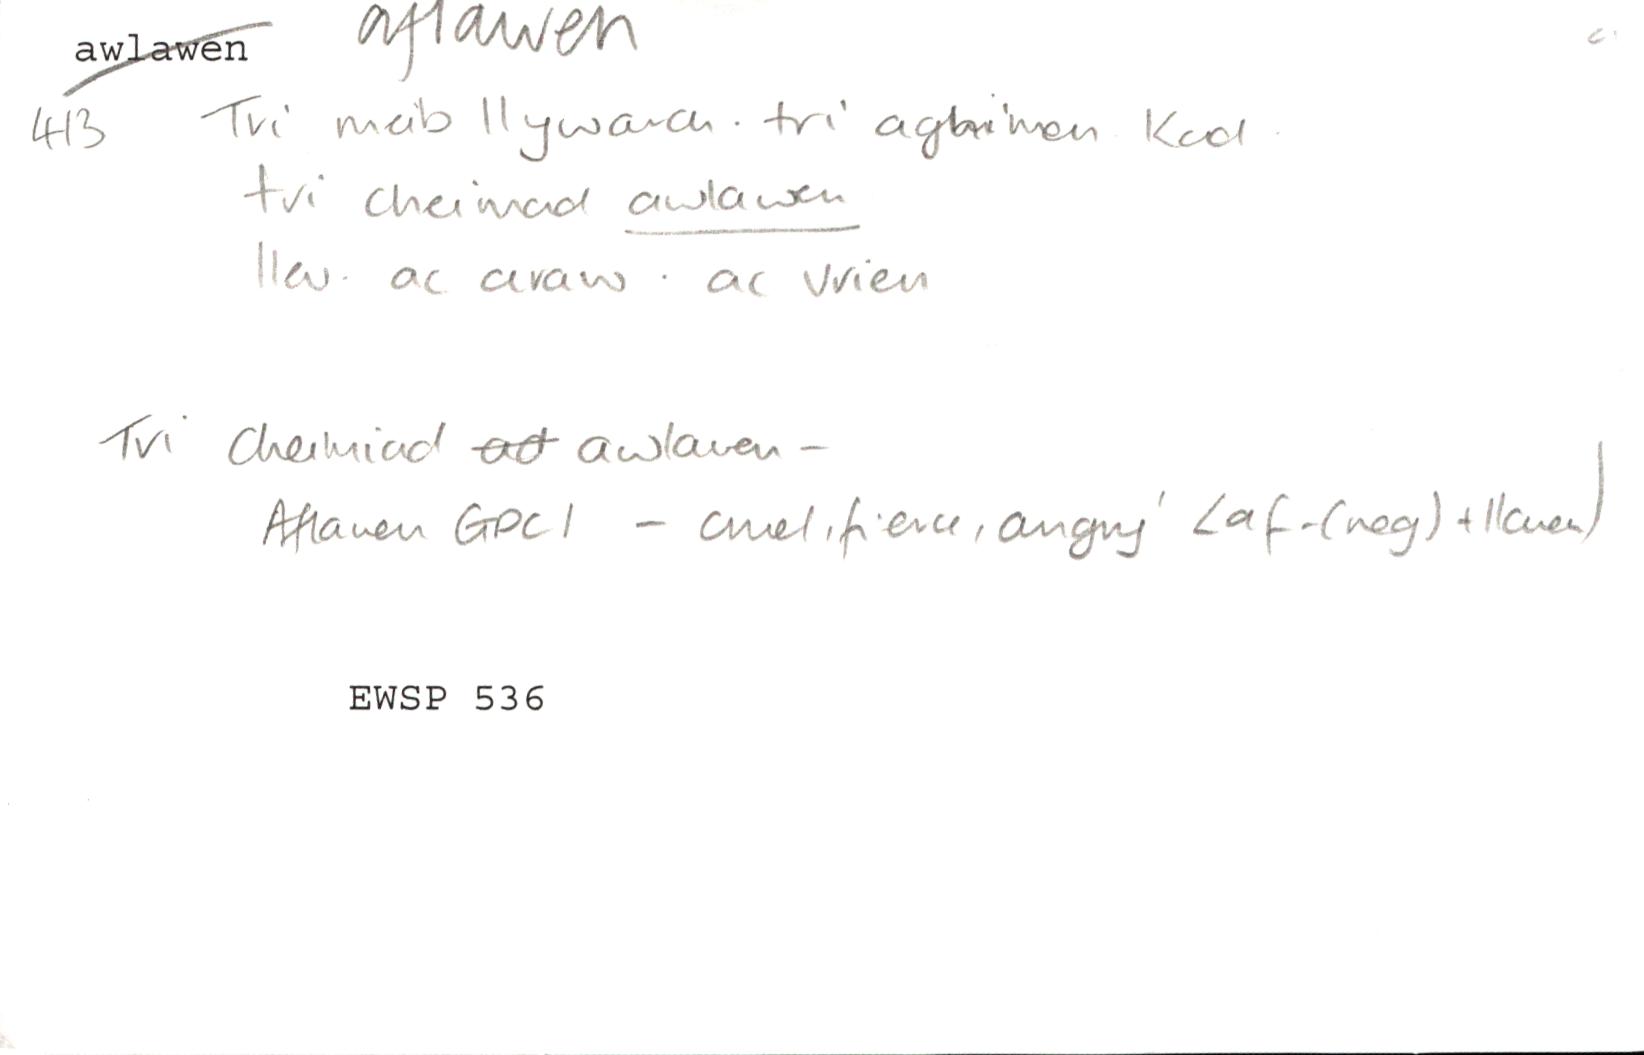 awlawen aflawen
413 Tri meib llywarch. tri agkimen Kad.
tri cheimad awlawen
llev. ac araw. ac vrien
Tri Cheimiad ad awlawen -
Aflawen GPC1 - cruel, fierce, angry' <af-(neg) + llawen)
EWSP 536